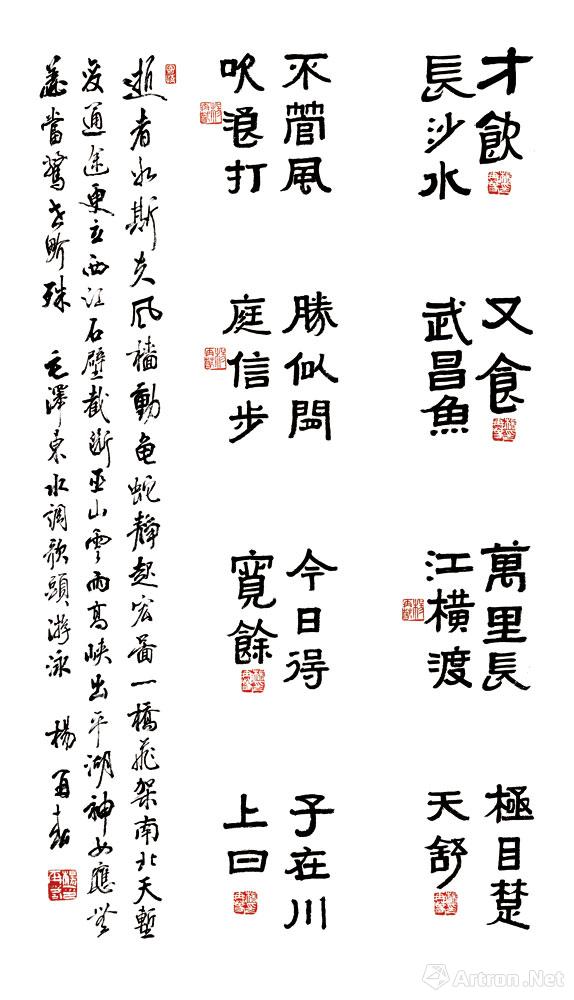 才飲
長沙水
又食
武昌魚
萬里長
江橫渡
極目楚
天舒
不管風
吹浪打
勝似閒
庭信步
今日得
寬餘
子在川
上曰
逝者如斯夫風檣動龜蛇靜起宏圖一橋飛架南北天塹
變通途更立西江石壁截斷巫山雲雨高峽出平湖神女應無
恙當驚世界殊 毛澤東水調歌頭游泳 楊再春
Artron.Net